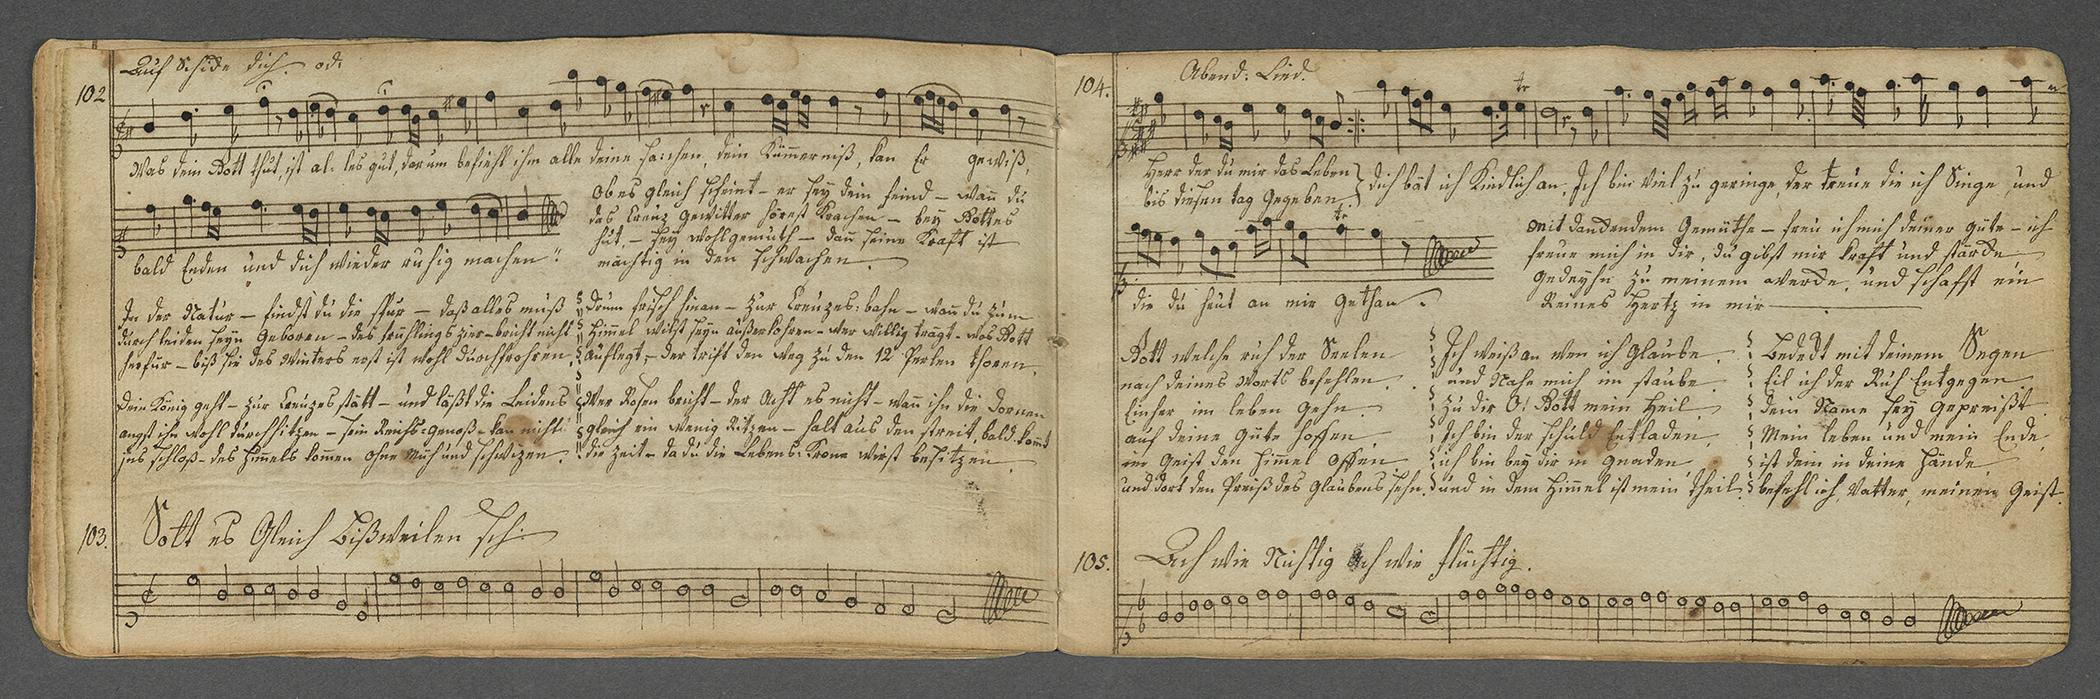 102
Auf Schicke dich. od:
Was dein Gott thut, ist al- les gut, darum befiehl ihm alle deine sachen, dein Kümerniß, kan Er gewiß,
bald Enden und dich wieder ruhig machen
Ob es gleich scheint – er sey dein feind – wañ du
das Creuz gewitter hörest Krachen – bey Gottes
hut, – sey wohlgemuth – dañ seine Kraft ist
mächtig in den schwachen.
In der Natur – findst du die spur – daß alles muß
durch leiden seyn Geboren – des frühlings zier – bricht nicht
herfür – biß sie des Winters erst ist wohl durchfrohren.
Drum frisch hinan – zur Creuzes-bahn – wañ du zum
Himmel wilst seyn außerkohren – wer willig trägt – was Gott
aufflegt, – der trift den weg zu den 12 Perlen thoren.
Dein König geht – zur Creuzes stätt – und läßt die Leidens
angst ihn wohl durchhitzen – sein Reichs-genoß – kan nicht
ins schloß – des Himels komen ohne Müh und schwizen.
Wer Rosen bricht – der Acht es nicht – wañ ihn die Dornen
gleich ein wenig Ritzen – halt aus den streit, bald komt
die zeit – da du die Lebens-Krone wirst besitzen.
103.
Solt es Gleich Bißweilen sch:
104.
Abend: Lied.
tr
Herr der du mir das Leben
bis diesen tag Gegeben
dich bät ich Kindlich an, Ich bin viel zu geringe, der treue die ich Singe und
tr
die du heut an mir gethan.
mit danckendem Gemüthe – freu ich mich deiner güte – ich
freue mich in dir, du gibst mir kraft und stärcke
gedeyhn zu meinem wercke, und schafst ein
Reines Hertz in mir
Gott welche ruh der Seelen
nach deines Worts befehlen
Einher im leben Gehn.
auf deine Güte hoffen
im Geist den Himel Offen
und dort den Preiß des Glaubens sehn.
Ich weiß an wen ich Glaube
und Nahe mich im staube
zu dir O! Gott mein Heil.
Ich bin der schuld Entladen
ich bin bey dir in gnaden
und in dem Himel ist mein theil.
Bedeckt mit deinem Segen
Eil ich der Ruh Entgegen
dein Name sey Gepreißt.
Mein leben und mein Ende
ist dein in deine Hände
befehl ich, Vatter, meinen Geist.
105.
Ach wie Nichtig Ach wie flüchtig.